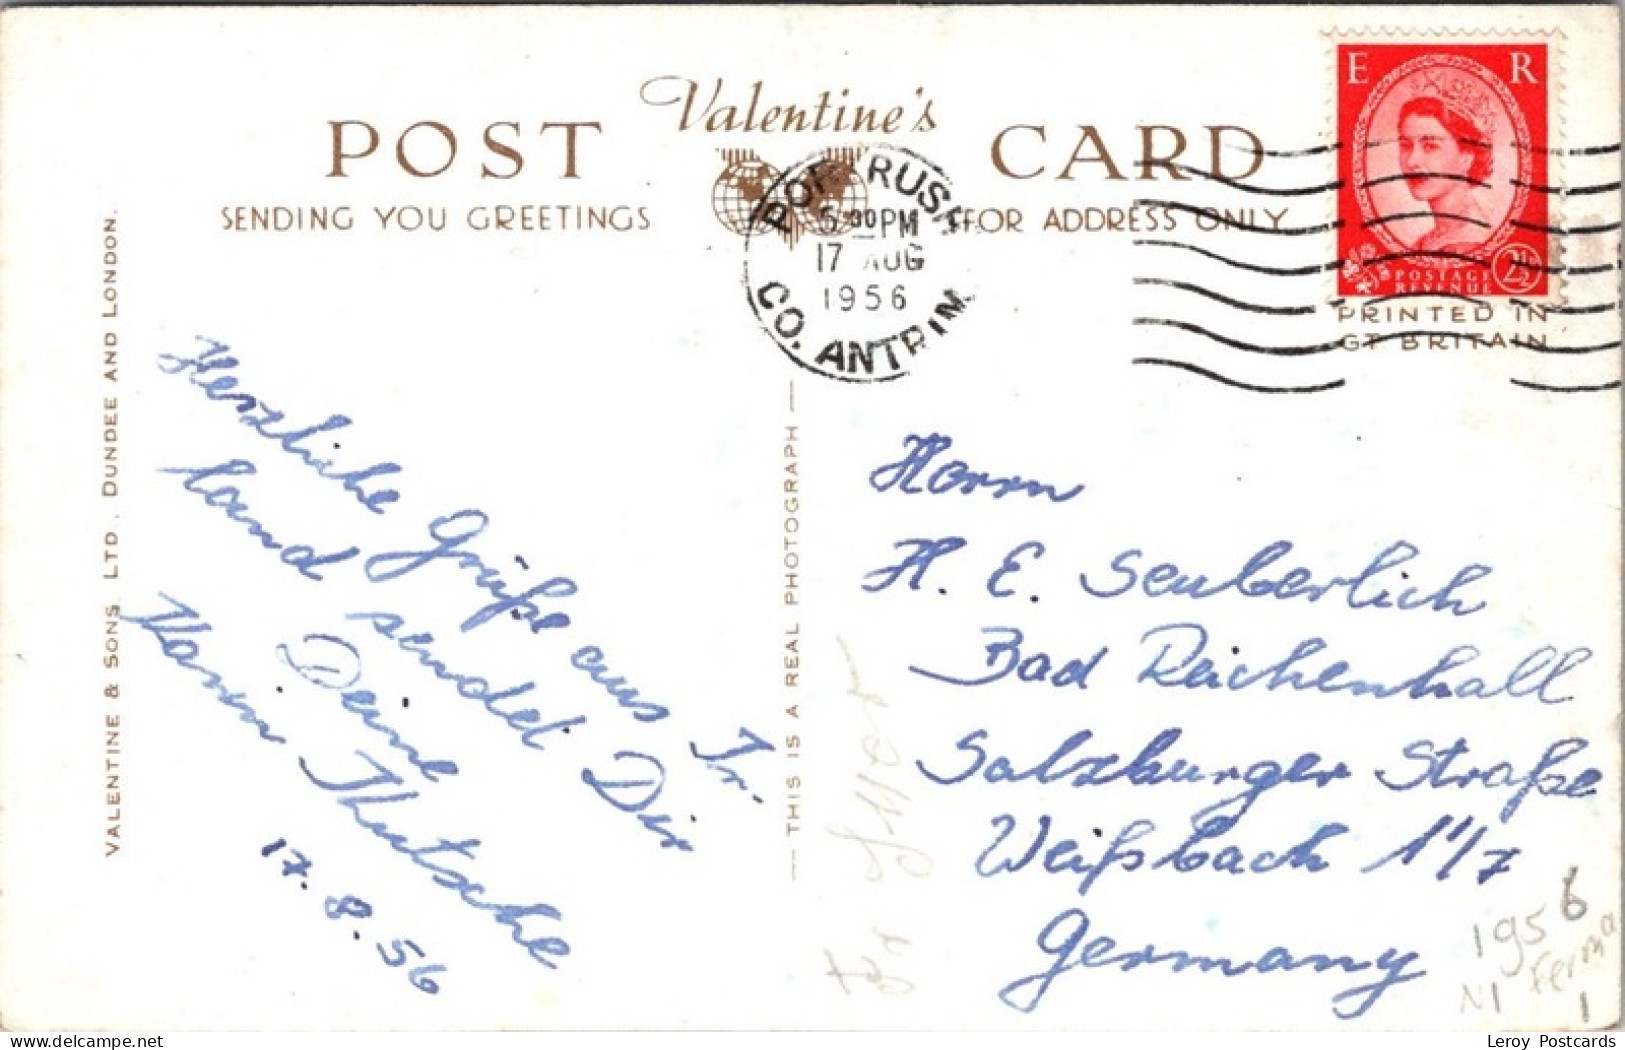 POST Valentine's CARD
SENDING YOU GREETINGS
FOR ADDRESS ONLY
PORTRUSH
5 30 PM
17 AUG
1956
CO. ANTRIM
E R
POSTAGE
REVENUE
2½
PRINTED IN
GT BRITAIN
VALENTINE & SONS LTD. DUNDEE AND LONDON.
THIS IS A REAL PHOTOGRAPH
Herzliche Grüße aus Ir.
land sendet Dir
Deine
Thutsche
17.8.56
Herrn
H. E. Seuberlich
Bad Reichenhall
Salzburger Straße
Weißbach 1½/7
Germany
1956
NI
1
Leroy Postcards